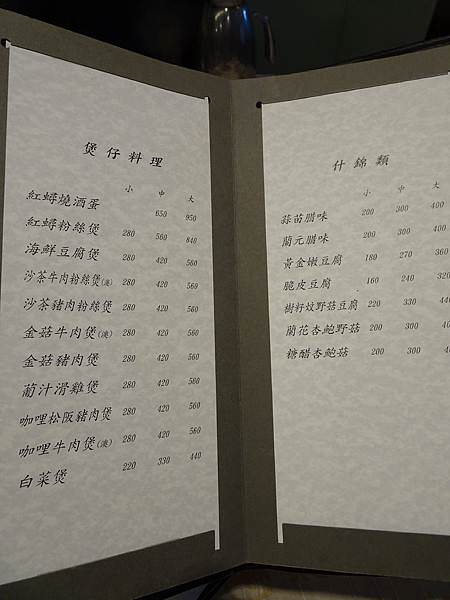 煲仔料理
小 中 大
紅蟳燒酒蛋 650 950
紅蟳粉絲煲 280 560 840
海鮮豆腐煲 280 420 560
沙茶牛肉粉絲煲(澳) 280 420 560
沙茶豬肉粉絲煲 280 420 560
金菇牛肉煲(澳) 280 420 560
金菇豬肉煲 280 420 560
葡汁滑雞煲 280 420 560
咖哩松阪豬肉煲 280 420 560
咖哩牛肉煲(澳) 280 420 560
白菜煲 220 330 440
什錦類
小 中 大
蒜苗腊味 200 300 400
蘭元腊味 200 300 400
黃金嫩豆腐 180 270 360
脆皮豆腐 160 240 320
樹籽蚊野菇豆腐 220 330 440
蘭花杏鮑野菇 200 300 400
糖醋杏鮑菇 200 300 400